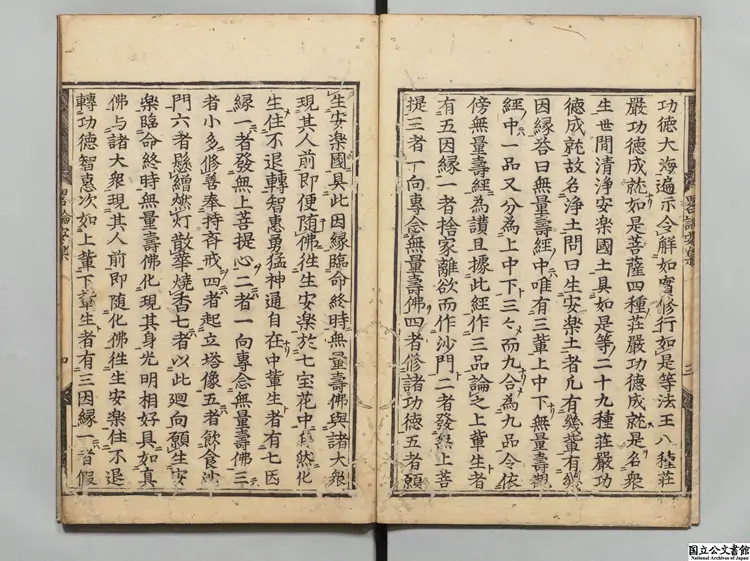 功徳大海遍示令解如實修行如是等法王八種莊
嚴功徳成就如是菩薩四種莊嚴功徳成就是名衆
生世間清浄安楽國土具如是等二十九種莊嚴功
徳成就故名浄土問曰生安楽土者凢有幾輩有幾
因縁荅曰無量壽經中唯有三輩上中下無量壽觀
經中一品又分為上中下三々而九合為九品今依
傍無量壽經為讃且據此經作三品論之上輩生者
有五因縁一者捨家離欲而作沙門二者發無上菩
提三者一向專念無量壽佛四者修諸功徳五者願
生安楽國具此因縁臨命終時無量壽佛與諸大衆
現其人前即便隨佛徃生安楽於七宝花中自然化
生住不退轉智惠勇猛神通自在中輩生者有七因
縁一者發無上菩提心二者一向專念無量壽佛三
者小多修善奉持斉戒四者起立塔像五者飲食沙
門六者懸繒燃灯散華燒香七者以此廻向願生安
楽臨命終時無量壽佛化現其身光明相好具如真
佛与諸大衆現其人前即随化佛徃生安楽住不退
轉功徳智惠次如上輩下輩生者有三因縁一者假
畧論安楽
三
畧論安楽
四
国立公文書館
National Archives of Japan